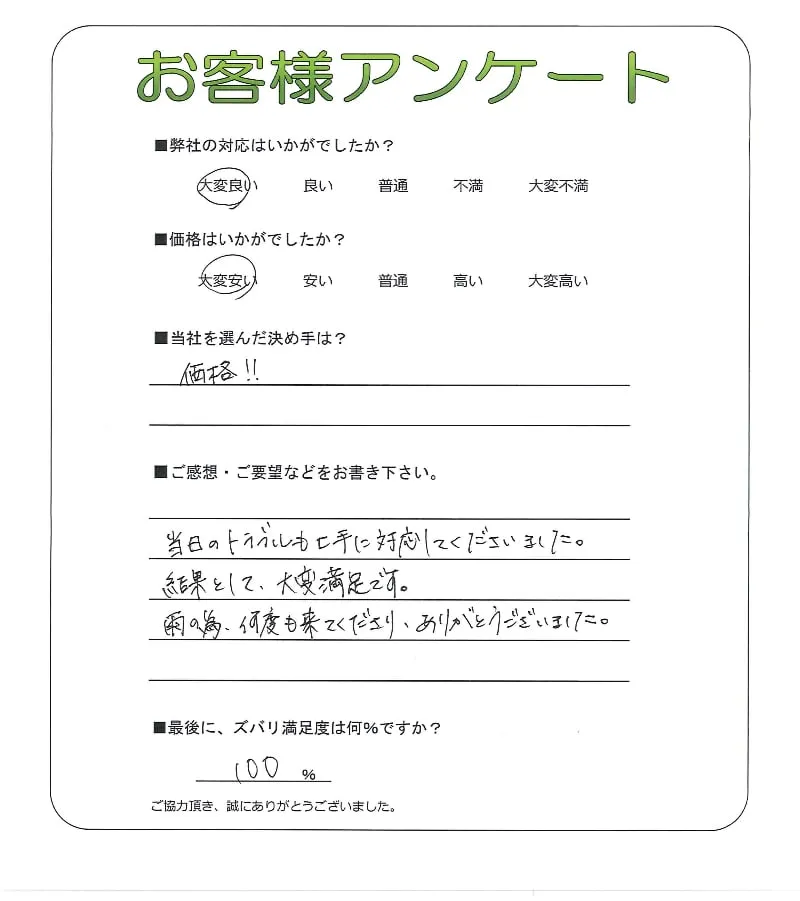 お客様アンケート
■弊社の対応はいかがでしたか？
大変良い 良い 普通 不満 大変不満
■価格はいかがでしたか？
大変安い 安い 普通 高い 大変高い
■当社を選んだ決め手は？
価格!!
■ご感想・ご要望などをお書き下さい。
当日のトラブルも上手に対応してくださいました。
結果として、大変満足です。
雨の為、何度も来てくださり、ありがとうございました。
■最後に、ズバリ満足度は何％ですか？
100 %
ご協力頂き、誠にありがとうございました。